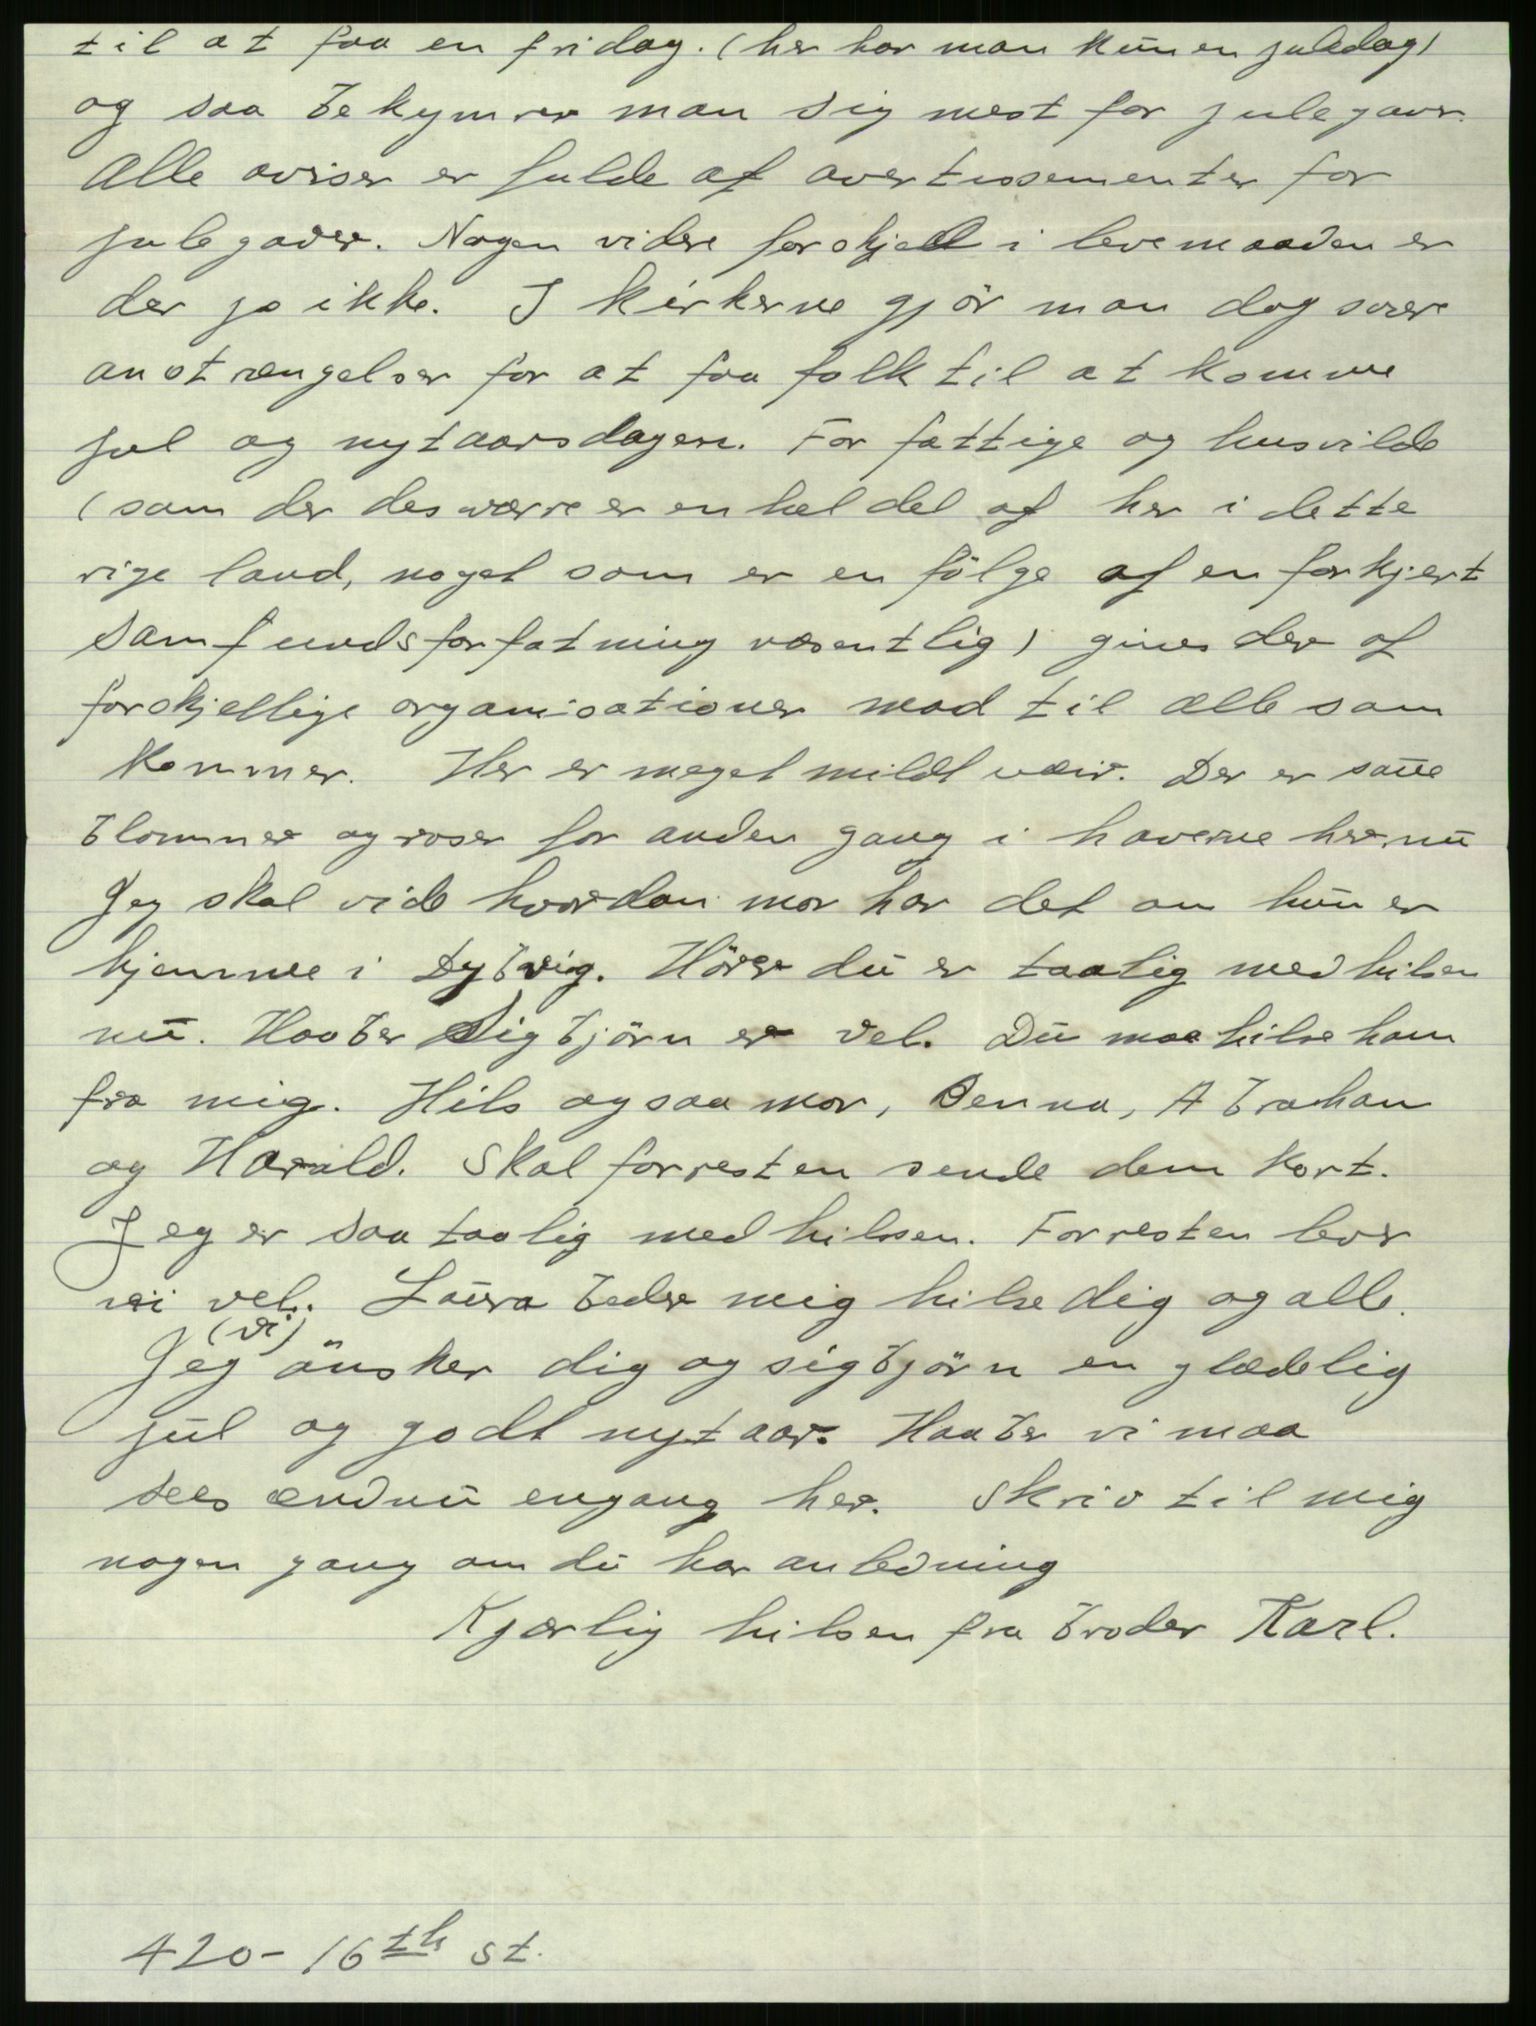 til at faa en fridag. (her har man kun en juledag)
og saa bekymrer man sig mest for julegaver.
Alle aviser er fulde af avertissementer for
julegaver. Nogen videre forskjell i levemaaden er
der jo ikke. I kirkerne gjör man dog svære
anstrængelser for at faa folk til at komme
jul og nytaarsdagen. For fattige og husvilde
(som der desværre er en hel del af her i dette
rige land, noget som er en fölge af en forkjert
samfundsforfatning væsentlig) gives der af
forskjellige organisationer mad til alle som
kommer. Her er meget mildt veir. Der er
blommer og roser for anden gang i haverne her nu
Jeg skal vide hvordan mor har det om hun er
hjemme i Dybvig. Hörer du er taalig med hilsen
nu. Haaber Sigbjörn er vel. Du maa hilse ham
fra mig. Hils ogsaa mor, Benna, Abraham
og Harald. Skal forresten sende dem kort.
Jeg er saa taalig med hilsen. Forresten lever
vi vel. Laura beder mig hilse dig og alle.
(vi)
Jeg önsker dig og sigbjörn en glædelig
jul og godt nytaar. Haaber vi maa
sees endnu engang her. Skriv til mig
nogen gang om du har anledning
Kjærlig hilsen fra broder Karl.
420-16th st.